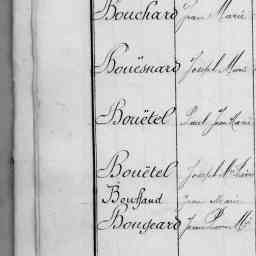 Bouchard Jean Marie
Bouësnard Joseph Marie
Bouëtel Paul Jean Marie
Bouëtel Joseph Mie
Bouffaud Jean Marie
Bougeard Jean